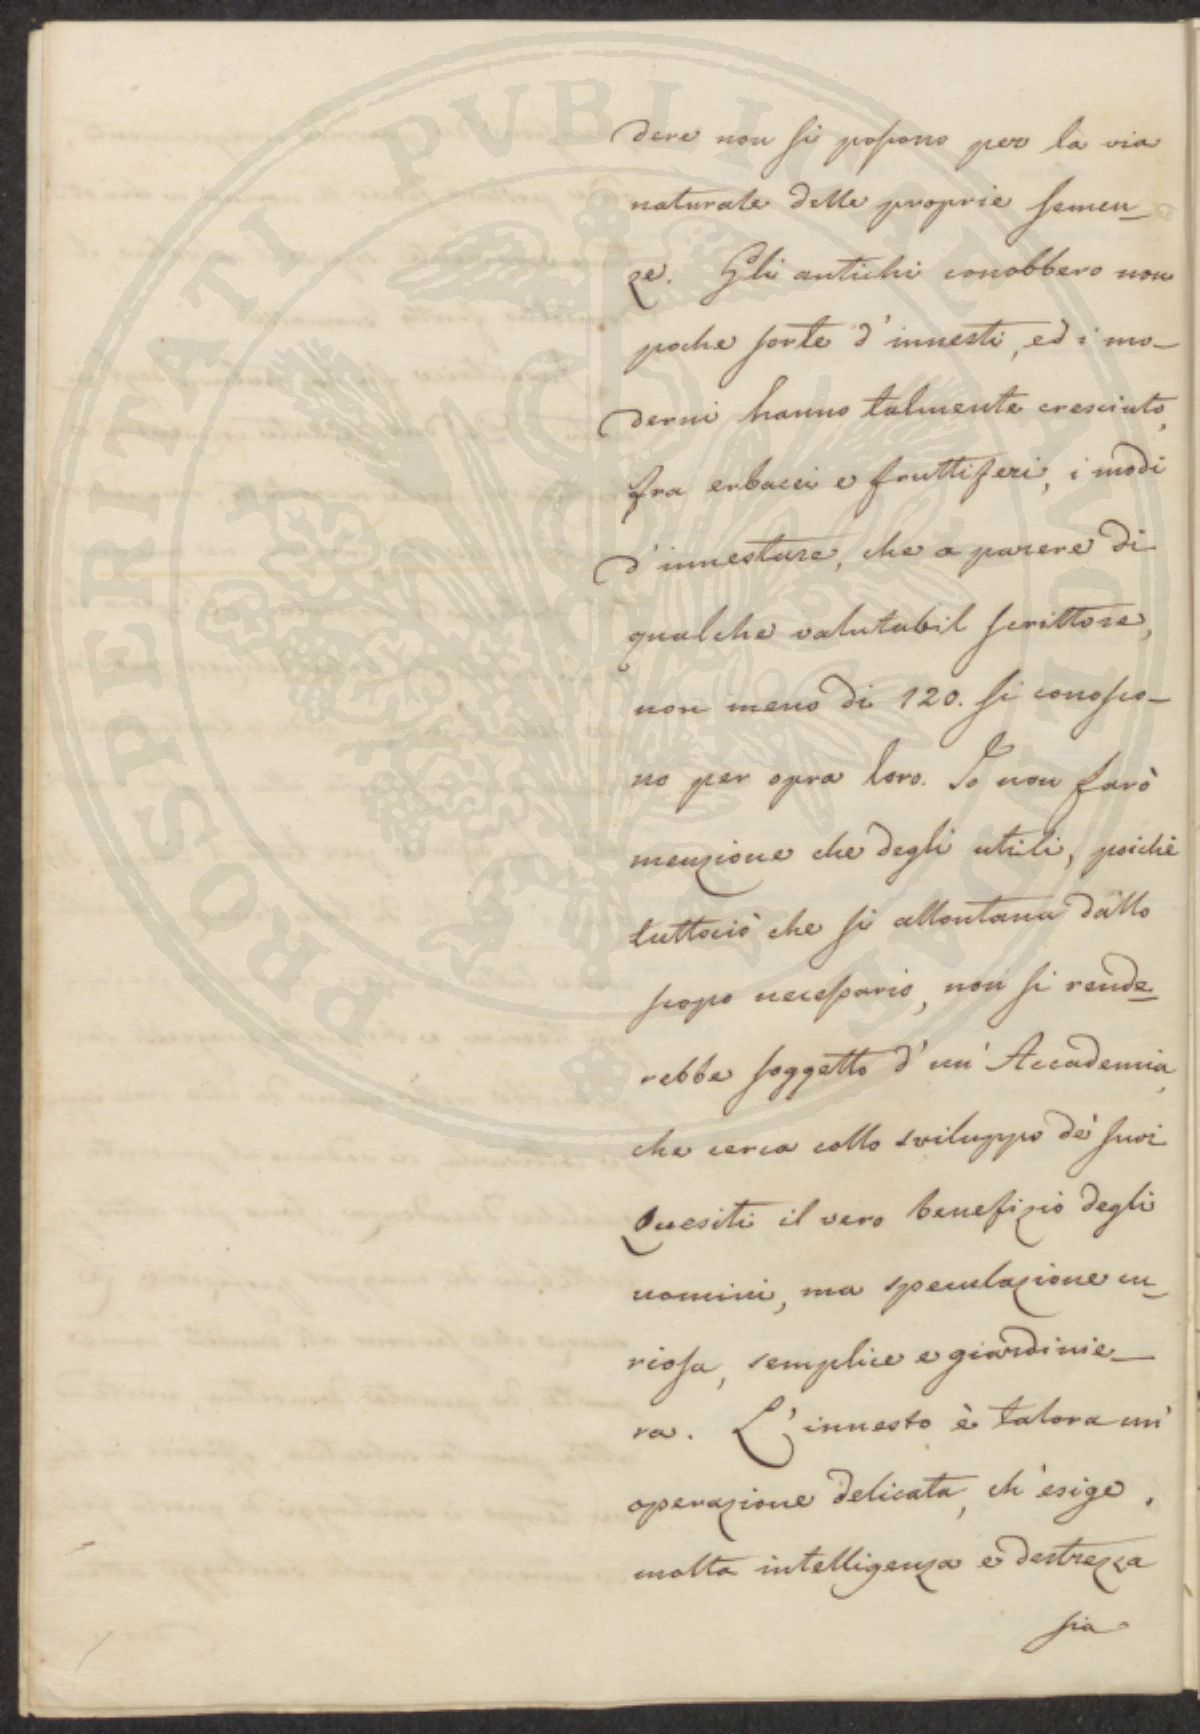 dere non si possono per la via
naturale delle proprie semen_
ze. Gli antichi conobbero non
poche sorte d'innesti, ed i mo_
derni hanno talmente cresciuto,
fra erbacei e fruttiferi, i modi
d'innestare, che a parere di
qualche valutabil scrittore,
non meno di 120. si conosco_
no per opra loro. Io non farò
menzione che degli utili, poichè
tuttociò che si allontana dallo
scopo necessario, non si rende_
rebbe soggetto d'un' Accademia,
che cerca collo sviluppo de' suoi
Quesiti il vero benefizio degli
uomini, ma speculazione cu_
riosa, semplice e giardinie_
ra. L'innesto è talora un'
operazione delicata, ch'esige,
molta intelligenza e destrezza
sia
PROSPERITATI PUBLICAE